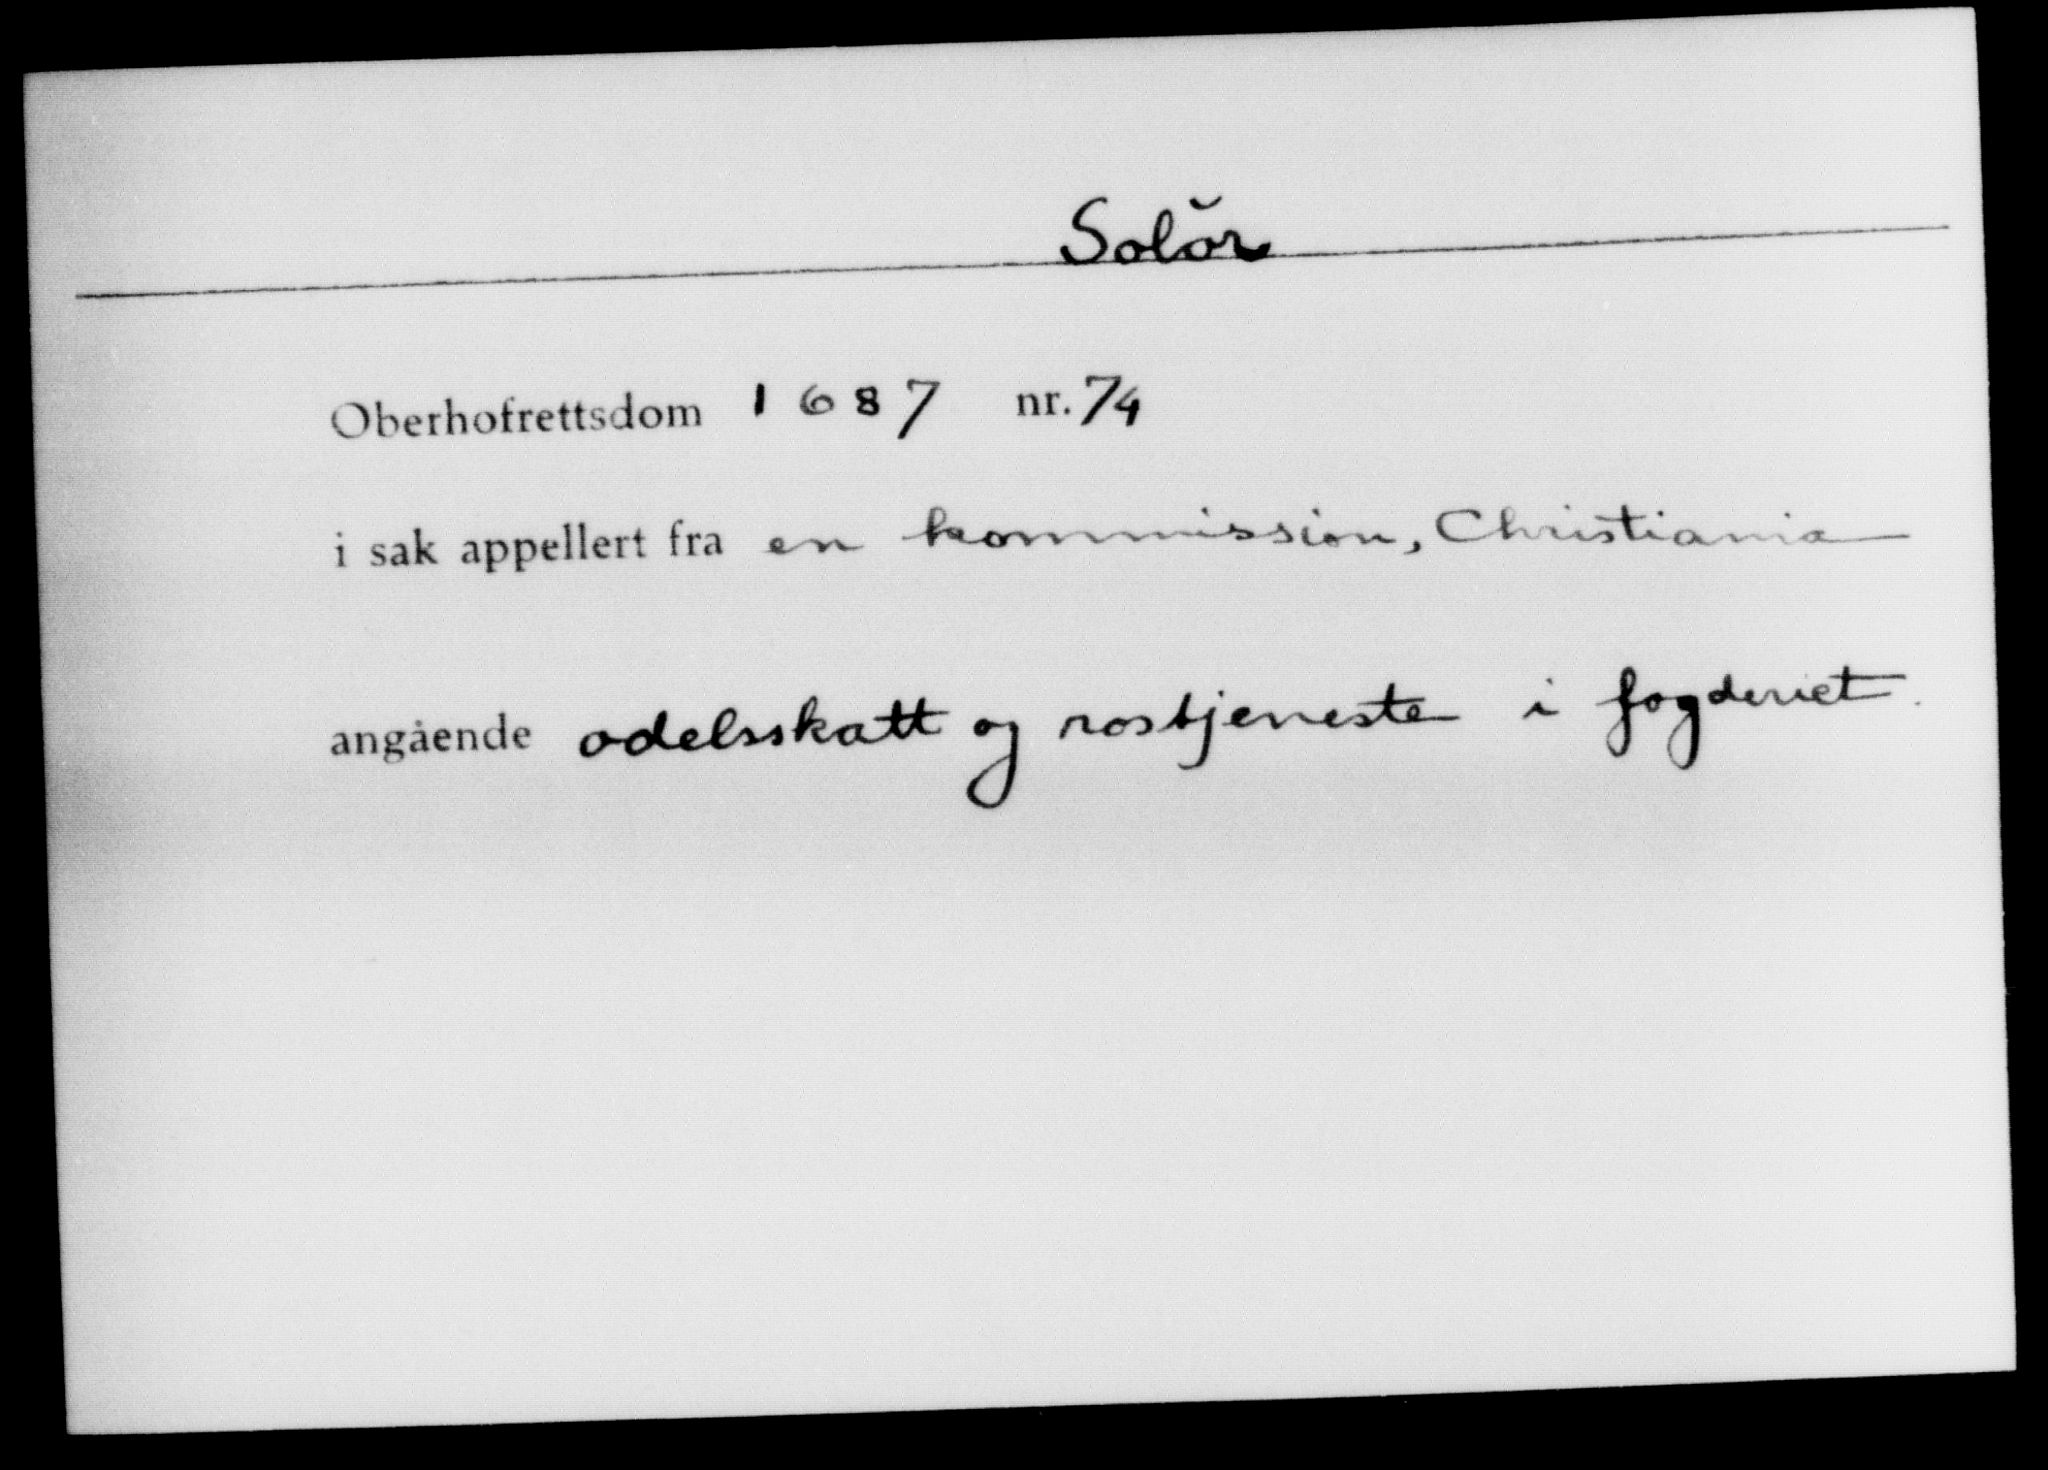 Solŏr
Oberhofrettsdom 1687 nr. 74
i sak appellert fra en kommission, Christiania
angående odelsskatt og rostjeneste i fogderiet.